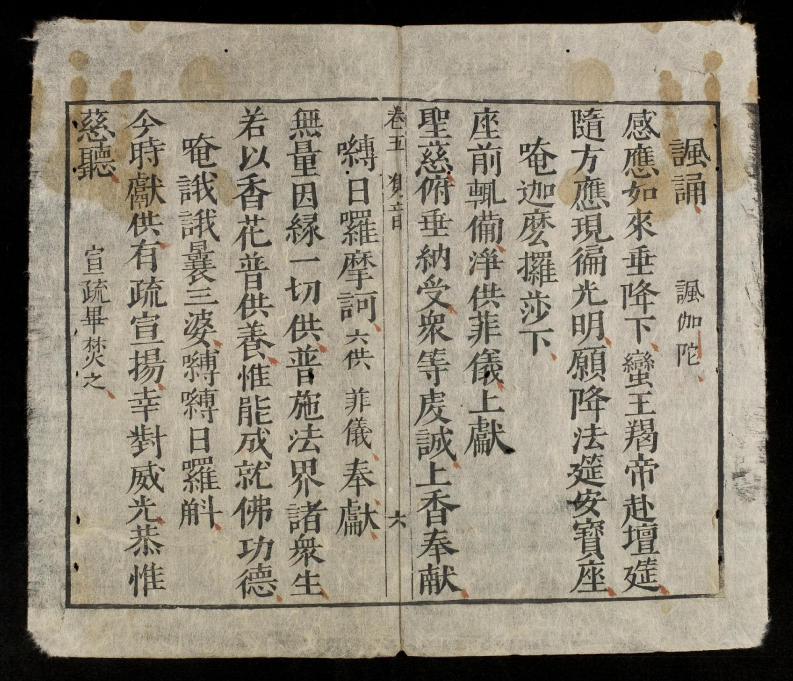 諷誦 諷伽陀
感應如來垂降下蠻王羯帝赴壇筵
隨方應現徧光明願降法筵安寶座
唵迦麽攞莎下
座前輒備淨供菲儀上獻
聖慈俯垂納受衆等虔誠上香奉献
卷五 六
嚩日囉摩訶 六供 菲儀奉獻
無量因緣一切供普施法界諸衆生
若以香花普供養惟能成就佛功德
唵誐誐曩三婆嚩嚩日囉斛
今時獻供有疏宣揚幸對威光恭惟
慈聽 宣疏畢焚之